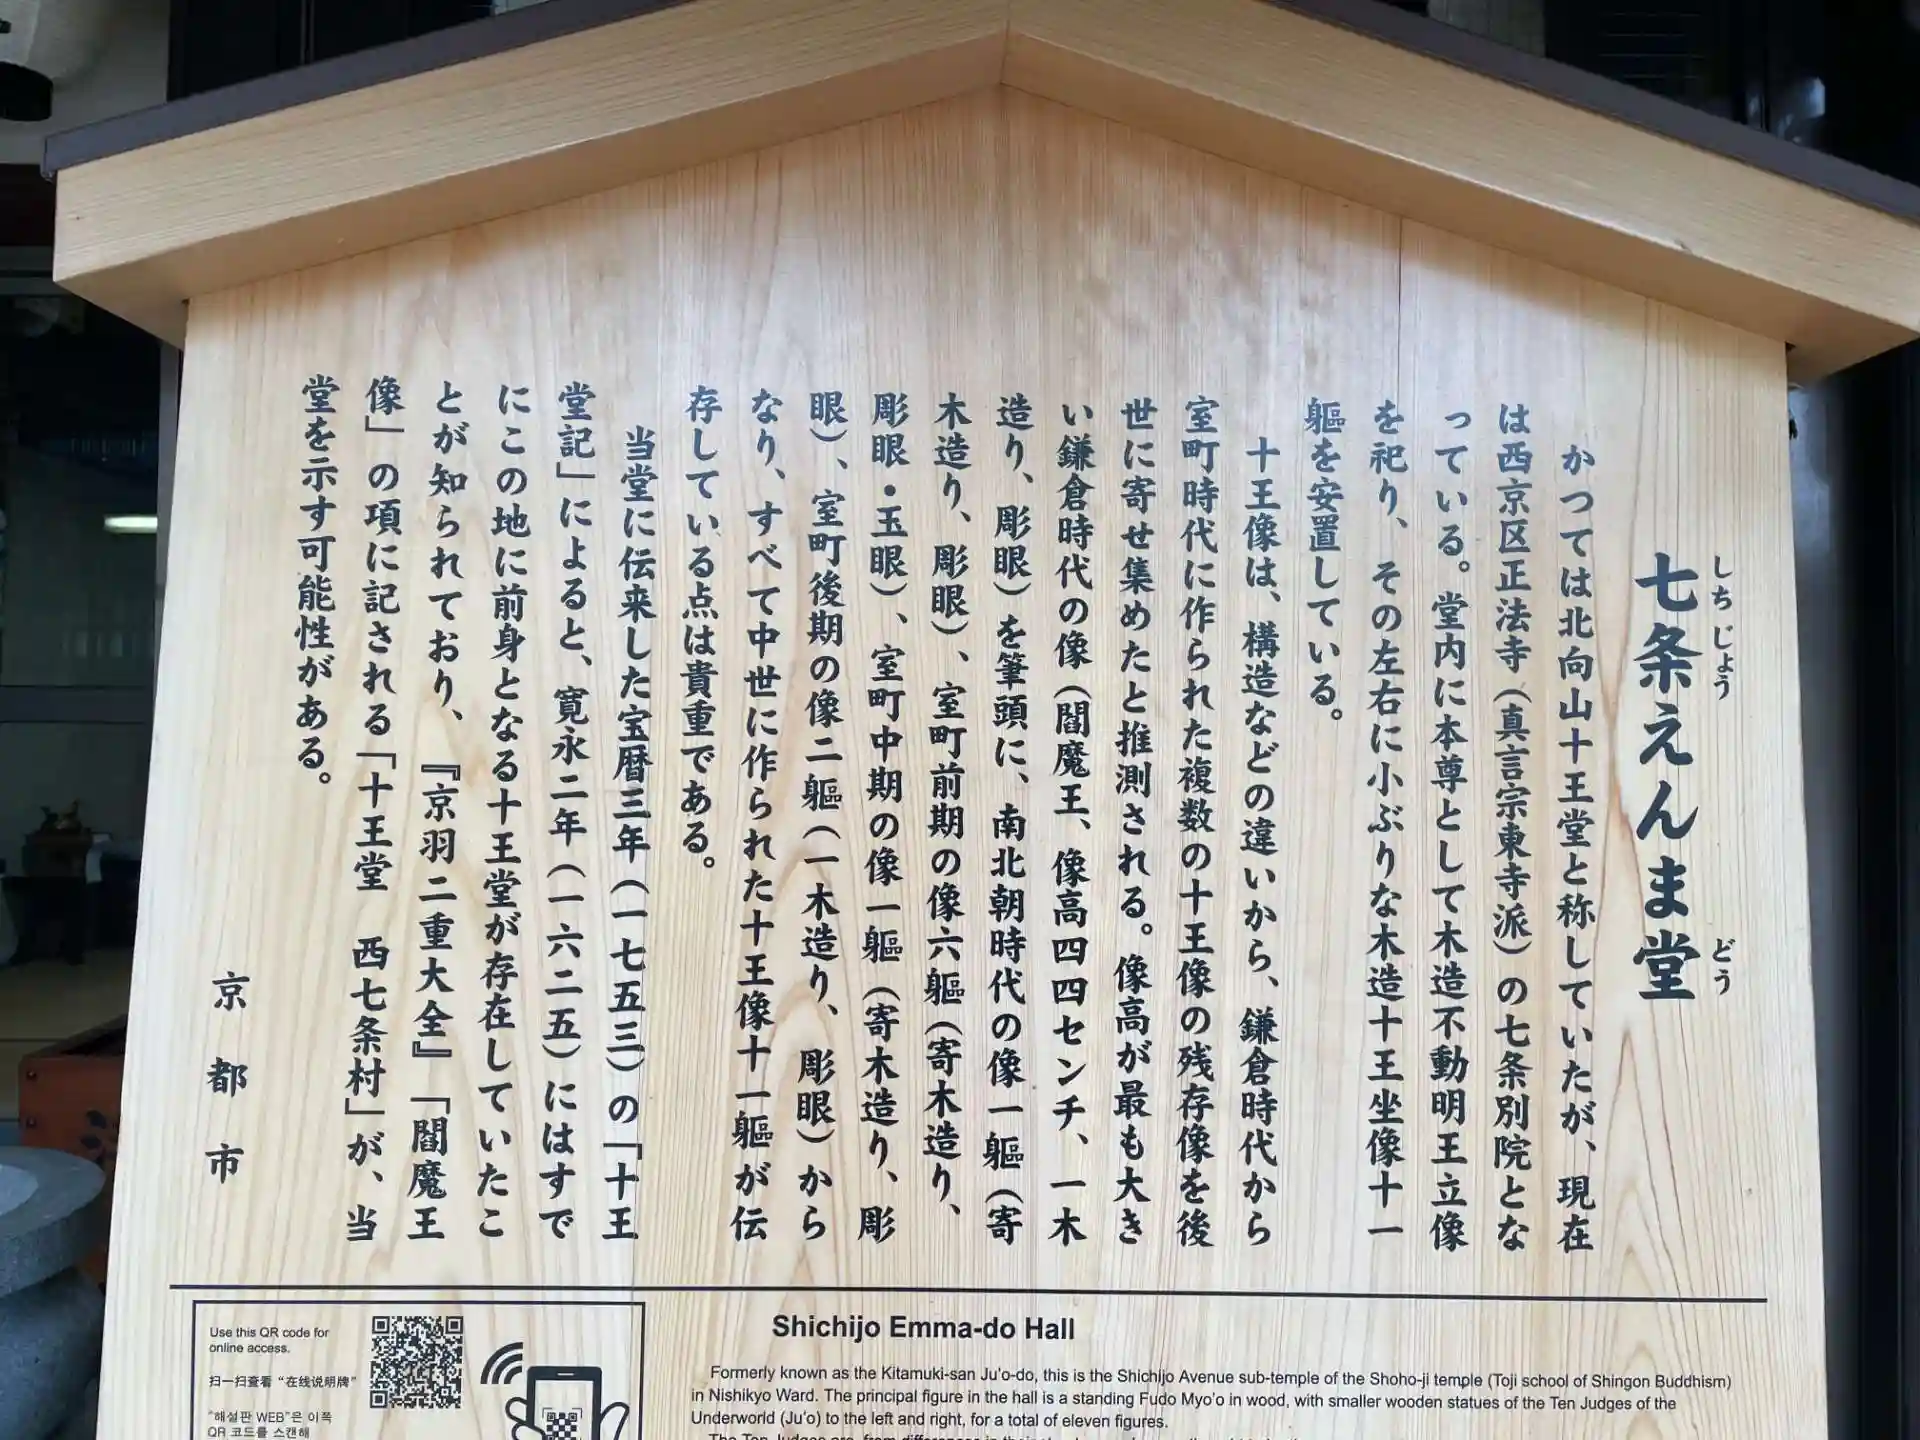 七条えんま堂
しちじょう
どう
かつては北向山十王堂と称していたが、現在
は西京区正法寺（真言宗東寺派）の七条別院とな
っている。堂内に本尊として木造不動明王立像
を祀り、その左右に小ぶりな木造十王坐像十一
軀を安置している。
十王像は、構造などの違いから、鎌倉時代から
室町時代に作られた複数の十王像の残存像を後
世に寄せ集めたと推測される。像高が最も大き
い鎌倉時代の像（閻魔王、像高四四センチ、一木
造り、彫眼）を筆頭に、南北朝時代の像一軀（寄
木造り、彫眼）、室町前期の像六軀（寄木造り、
彫眼・玉眼）、室町中期の像一軀（寄木造り、彫
眼）、室町後期の像二軀（一木造り、彫眼）から
なり、すべて中世に作られた十王像十一軀が伝
存している点は貴重である。
当堂に伝来した宝暦三年（一七五三）の「十王
堂記」によると、寛永二年（一六二五）にはすで
にこの地に前身となる十王堂が存在していたこ
とが知られており、『京羽二重大全』「閻魔王
像」の項に記される「十王堂　西七条村」が、当
堂を示す可能性がある。
京都市
Use this QR code for
online access.
扫一扫查看“在线说明牌”
"해설판 WEB"은 이쪽
QR 코드를 스캔해
Shichijo Emma-do Hall
Formerly known as the Kitamuki-san Ju'o-do, this is the Shichijo Avenue sub-temple of the Shoho-ji temple (Toji school of Shingon Buddhism)
in Nishikyo Ward. The principal figure in the hall is a standing Fudo Myo'o in wood, with smaller wooden statues of the Ten Judges of the
Underworld (Ju'o) to the left and right, for a total of eleven figures.
The Ten Judges are, from differences in